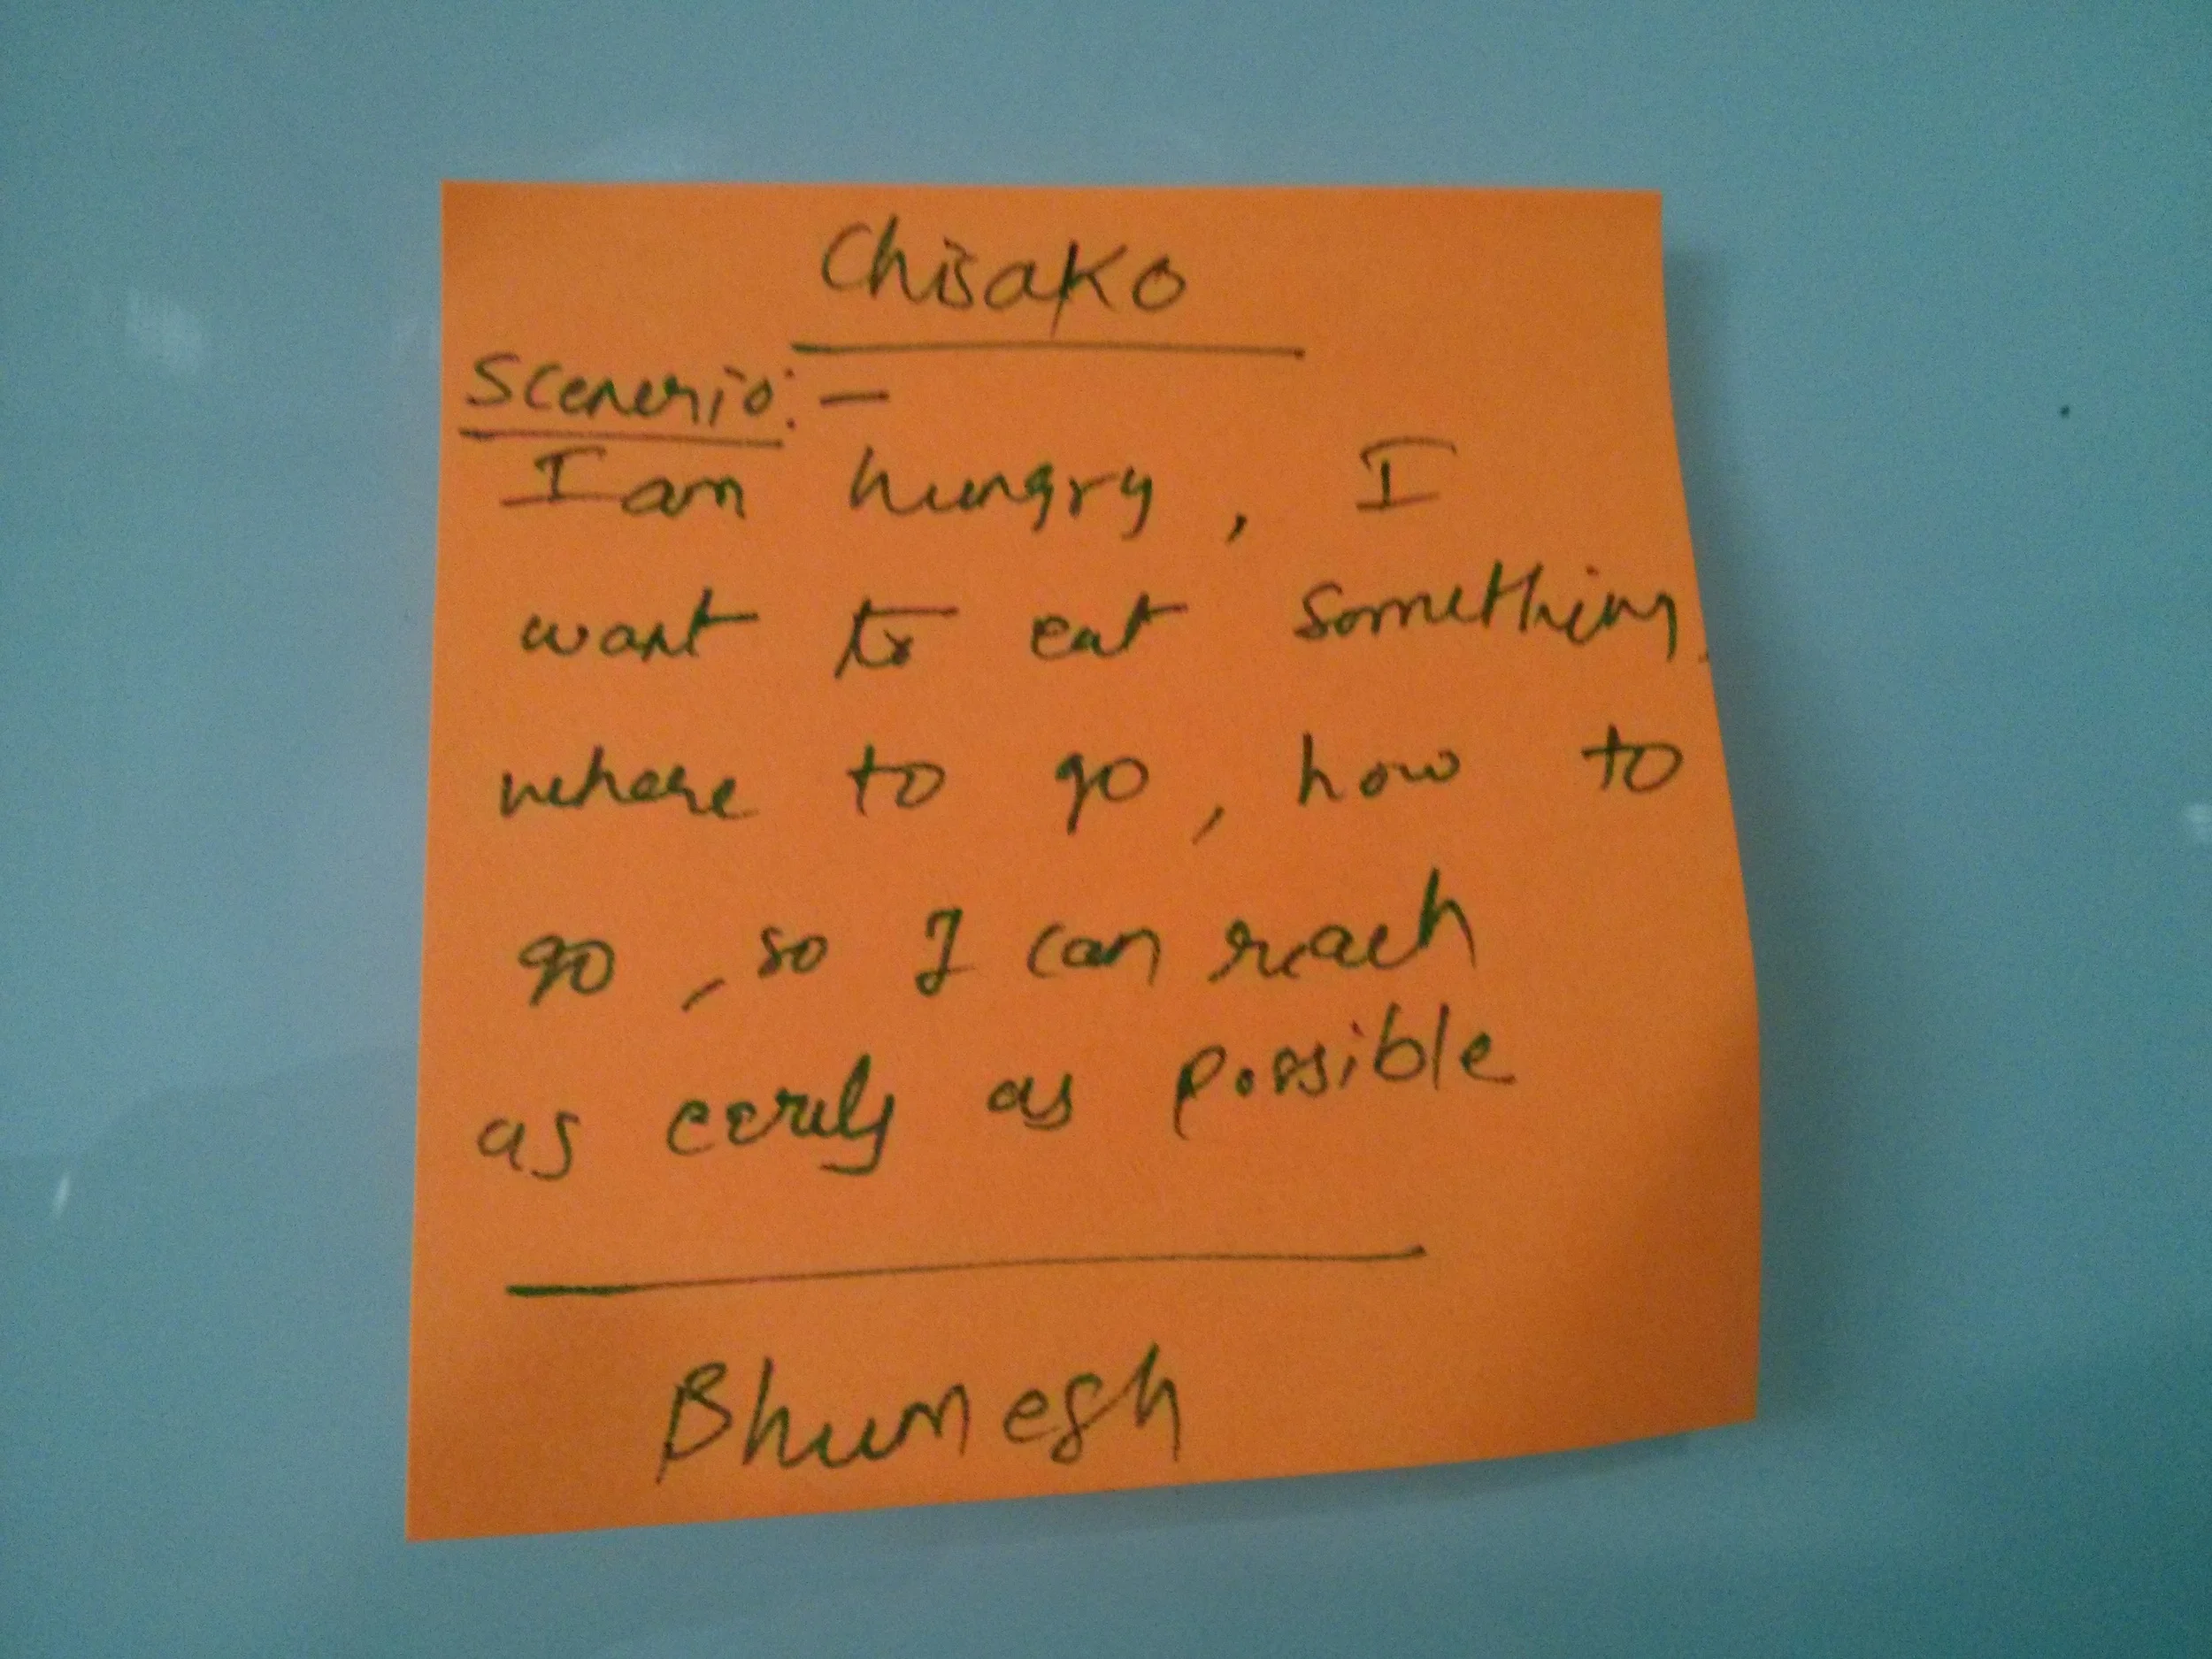 Chisako
Scenerio:-
I am hungry, I
want to eat something.
where to go, how to
go, so I can reach
as eerly as possible
Bhumesh